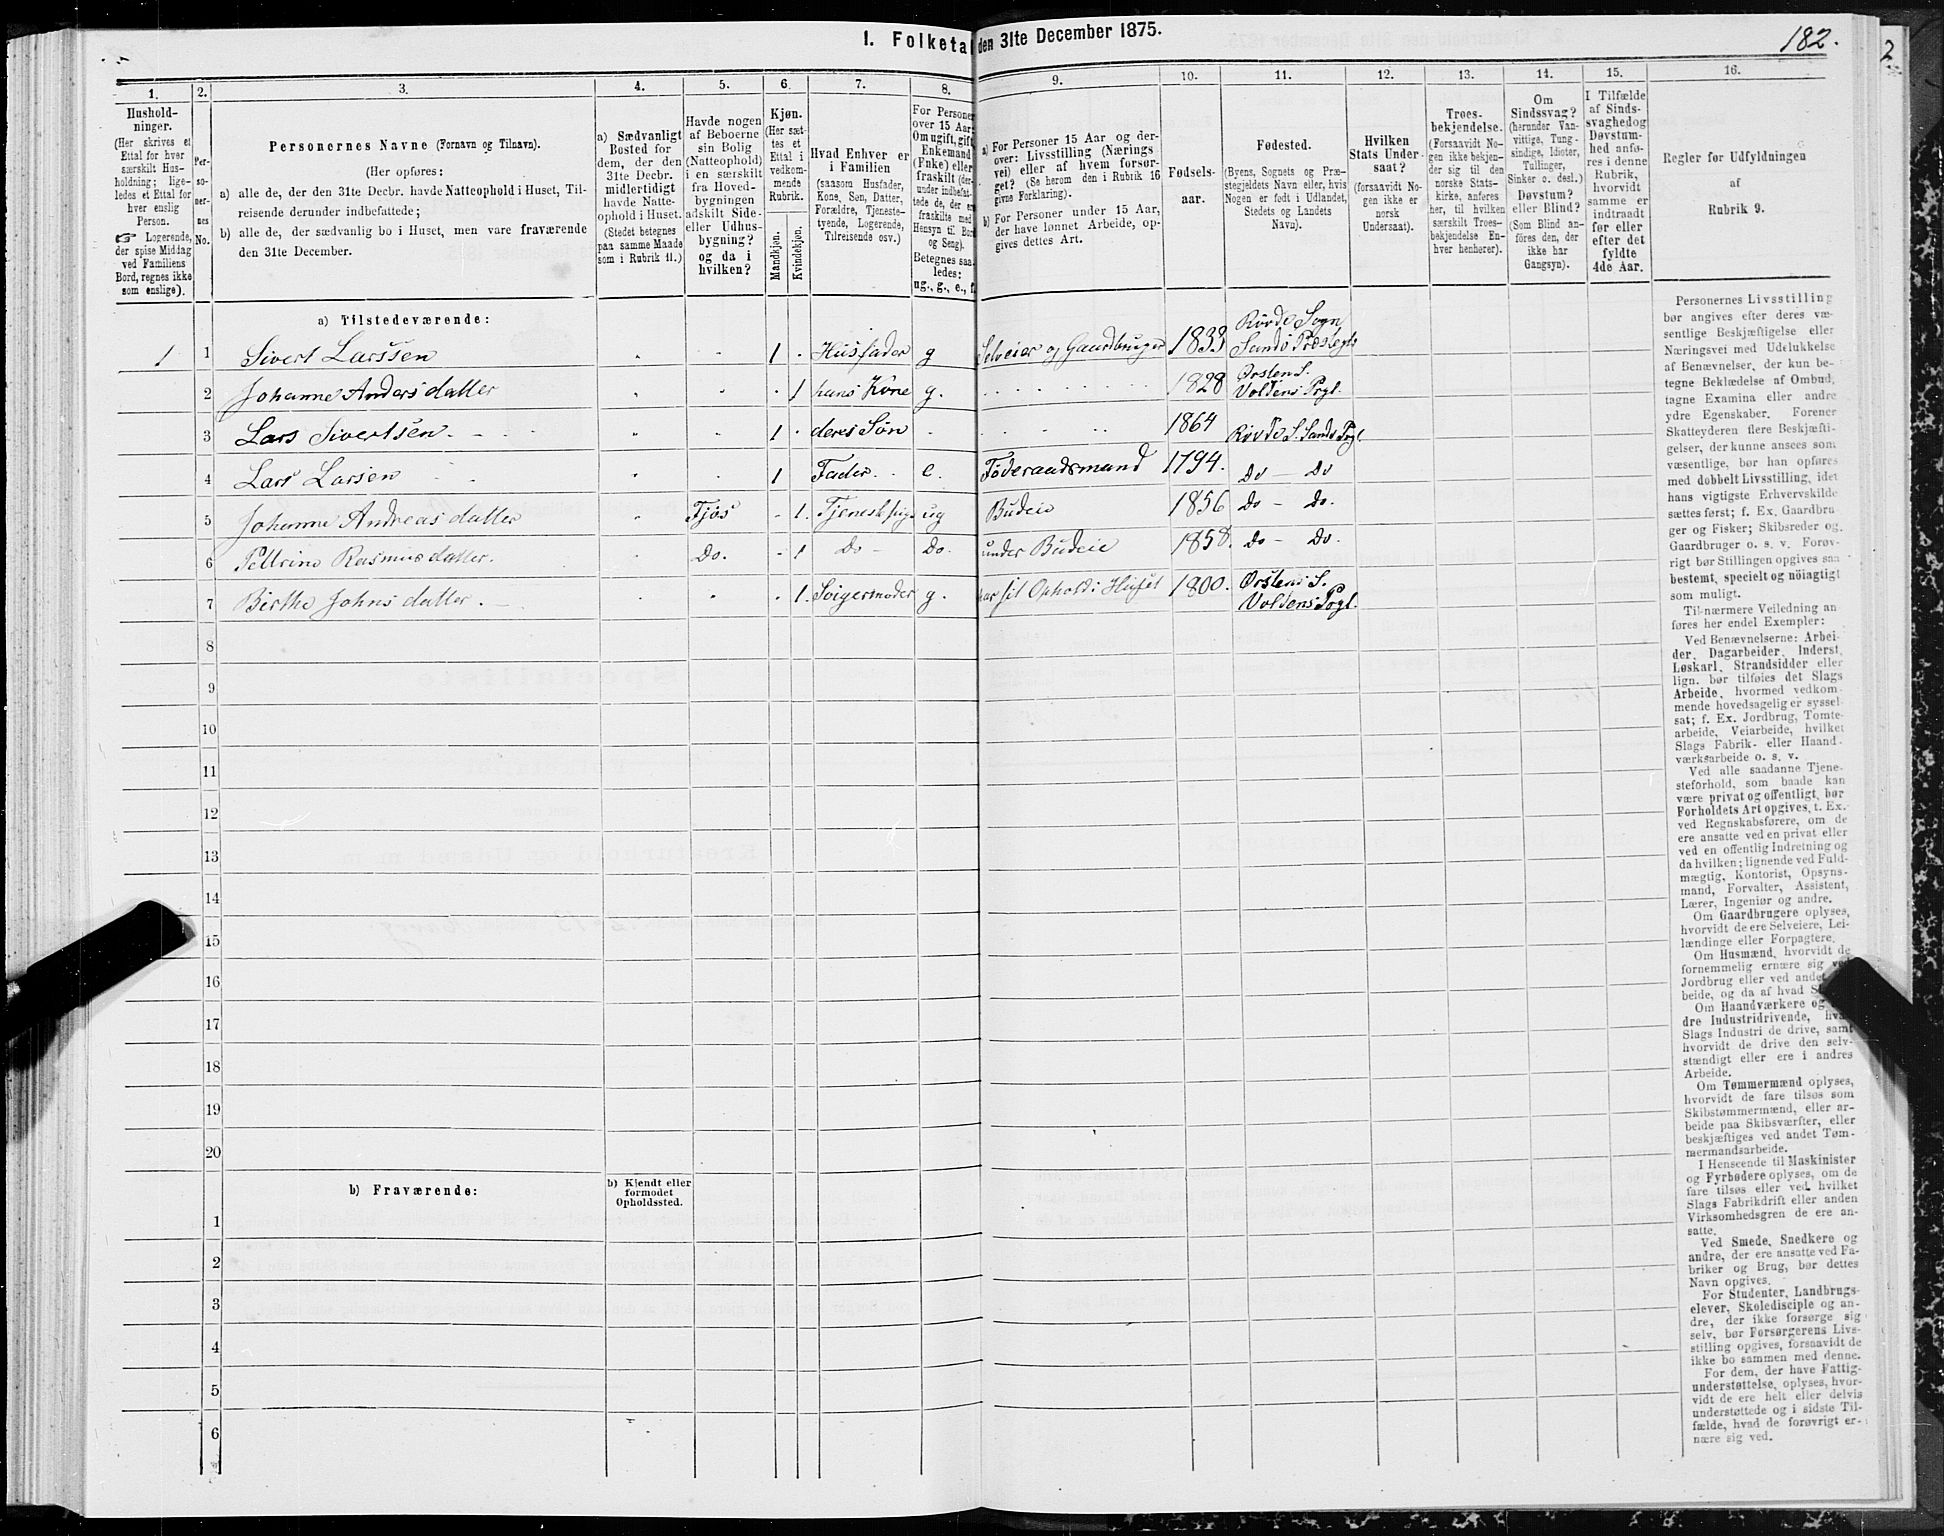 1. Folketa den 31te December 1875.
182.
2
1.
2.
3.
4.
5.
6.
7.
8.
9.
10.
11.
12.
13.
14.
15.
16.
Hushold-
ninger.
(Her skrives et
Ettal for hver
særskilt Hus-
holdning; lige-
ledes et Ettal for
hver enslig
Person.
☞ Logerende,
der spise Middag
ved Familiens
Bord, regnes ikke
som enslige).
Per-
so-
ner-
nes
No.
Personernes Navne (Fornavn og Tilnavn).
(Her opføres:
a) alle de, der den 31te Decbr. havde Natteophold i Huset, Til-
reisende derunder indbefattede;
b) alle de, der sædvanlig bo i Huset, men vare fraværende
den 31te December.
a) Sædvanligt
Bosted for
dem, der den
31te Decbr.
midlertidigt
havde Natte-
ophold i Huset.
(Stedet betegnes
paa samme Maade
som i Rubrik 11.)
Havde nogen
af Beboerne
sin Bolig
(Natteophold)
i en særskilt
fra Hoved-
bygningen
adskilt Side-
eller Udhus-
bygning?
og da i
hvilken?
Kjøn.
(Her sæt-
tes et
Ettal i
vedkom-
mende
Rubrik.
Mandkjøn.
Kvindekjøn.
Hvad Enhver er
i Familien
(saasom Husfader,
Kone, Søn, Datter,
Forældre, Tjeneste-
tyende, Logerende,
Tilreisende osv.)
For Persone
over 15 Aar:
Om ugift, gift,
Enkemand
(Enke) eller
fraskilt (der-
under indbefat-
tede de, der er
fraskilte med
Hensyn til Bord
og Seng).
Betegnes saa-
ledes:
ug., g., e., f.
a) For Personer 15 Aar og der-
over: Livsstilling (Nærings
vei) eller af hvem forsør-
get? (Se herom den i Rubrik 16
givne Forklaring).
b) For Personer under 15 Aar,
der have lønnet Arbeide, op-
gives dettes Art.
Fødsels-
aar.
Fødested.
(Byens, Sognets og Præ-
stegjeldets Navn eller, hvis
Nogen er født i Udlandet,
Stedets og Landets
Navn).
Hvilken
Stats Under-
saat?
(forsaavidt No-
gen ikke er
norsk
Undersaat).
Troes-
bekjendelse.
(Forsaavidt No-
gen ikke bekjen-
der sig til den
norske Stats-
kirke, anføres
her, til hvilken
særskilt Troes-
bekjendelse En-
hver henhører).
Om
Sindssvag?
(herunder Van-
vittige, Tung-
sindige, Idioter,
Tullinger,
Sinker o. desl.)
Døvstum?
eller Blind?
(Som Blind an-
føres den, der
ikke har
Gangsyn).
I Tilfælde
af Sinds-
svaghed og
Døvstum-
hed anfø-
res i denne
Rubrik,
hvorvidt
samme er
indtraadt
før eller
efter det
fyldte
4de Aar.
Regler før Udfyldningen
af
Rubrik 9.
a) Tilstedeværende:
1 1 Sivert Larssen 1 Husfader g Selveier og Gaardbruger 1833 Rövde Sogn Sandö Præstegl
2 Johanne Andersdatter 1 hans Köne g. 1828 Örsten S. Voldens Prgl.
3 Lars Sivertsen. 1 deres Sön 1864 Rövde S. Sandö Prgl.
4 Lars Larsen 1 Fader. e. Föderaadsmand 1794. Do — Do
5 Johanne Andreasdatter Fjös 1. Tjenestpige ug Budeie 1856 Do — Do.
6 Pettrine Rasmusdatter. Do. 1 Do — Do. under Budeie 1858. Do — Do.
7 Birthe Johnsdatter. 1. Svigermoder g. har sit Ophold i Huset 1800. Örstens S. Voldens Prgl.
8
9
10
11
12
13
14
15
16
17
18
19
20
b) Fraværende:
b) Kjendt eller
formodet
Opholdssted.
1
2
3
4
5
6
Personernes Livsstilling
bør angives efter deres væ-
sentlige Beskjæftigelse eller
Næringsvei med Udelukkelse
af Benævnelser, der kun be-
tegne Beklædelse af Ombud,
tagne Examina eller andre
ydre Egenskaber. Forener
Skatteyderen flere Beskjæfti-
gelser, der kunne ansees som
væsentlige, bør han opføres
med dobbelt Livsstilling, idet
hans vigtigste Erhvervskilde
sættes først; f. Ex. Gaardbru
ger og Fisker; Skibsreder og
Gaardbruger o. s. v. Forøv-
rigt bør Stillingen opgives saa
bestemt, specielt og nöiagtigt
som muligt.
Til nærmere Veiledning an
føres her endel Exempler:
Ved Benævnelserne: Arbei-
der, Dagarbeider, Inderst,
Løskarl, Strandsidder eller
lign. bør tilføies det Slags
Arbeide, hvormed vedkom-
mende hovedsagelig er syssel-
sat; f. Ex. Jordbrug, Tomte-
arbeide, Veiarbeide, hvilket
Slags Fabrik- eller Haand-
værksarbeide o. s. v.
Ved alle saadanne Tjene-
steforhold, som baade kan
være privat og offentligt, bør
Forholdets Art opgives, t. Ex.
ved Regnskabsførere, om de
ere ansatte ved en privat eller
ved en offentlig Indretning og
da hvilken; lignende ved Fuld-
mægtig, Kontorist, Opsyns-
mand, Forvalter, Assistent,
Lærer, Ingeniør og andre.
Om Gaardbrugere oplyses,
hvorvidt de ere Selveiere, Lei-
lændinge eller Forpagtere.
Om Husmænd, hvorvidt de
fornemmelig ernære sig ved
Jordbrug eller ved andet
beide, og da af hvad
Om Haandværkere og
dre Industridrivende,
Slags Industri de drive, samt
hvorvidt de drive den selv-
stændigt eller ere i andres
Arbeide.
Om Tømmermænd oplyses,
hvorvidt de fare tilsøs som
Skibstømmermænd, eller ar-
beide paa Skibsværfter, eller
beskjæftiges ved andet Tøm-
mermandsarbeide.
I Henseende til Maskinister
og Fyrbødere oplyses, om de
fare tilsøs eller ved hvilket
Slags Fabrikdrift eller anden
Virksomhedsgren de ere an-
satte.
Ved Smede, Snedkere og
andre, der ere ansatte ved Fa-
briker og Brug, bør dettes
Navn opgives.
For Studenter, Landbrugs-
elever, Skoledisciple og an-
dre, der ikke forsørge sig
selv, bør Forsørgerens Livs-
stilling opgives, forsaavidt de
ikke bo sammen med denne.
For dem, der have Fattig-
understøttelse, oplyses, hvor-
vidt de ere helt eller delvis
understøttede og i sidste Til-
fælde, hvad de forøvrigt er-
nære sig ved.